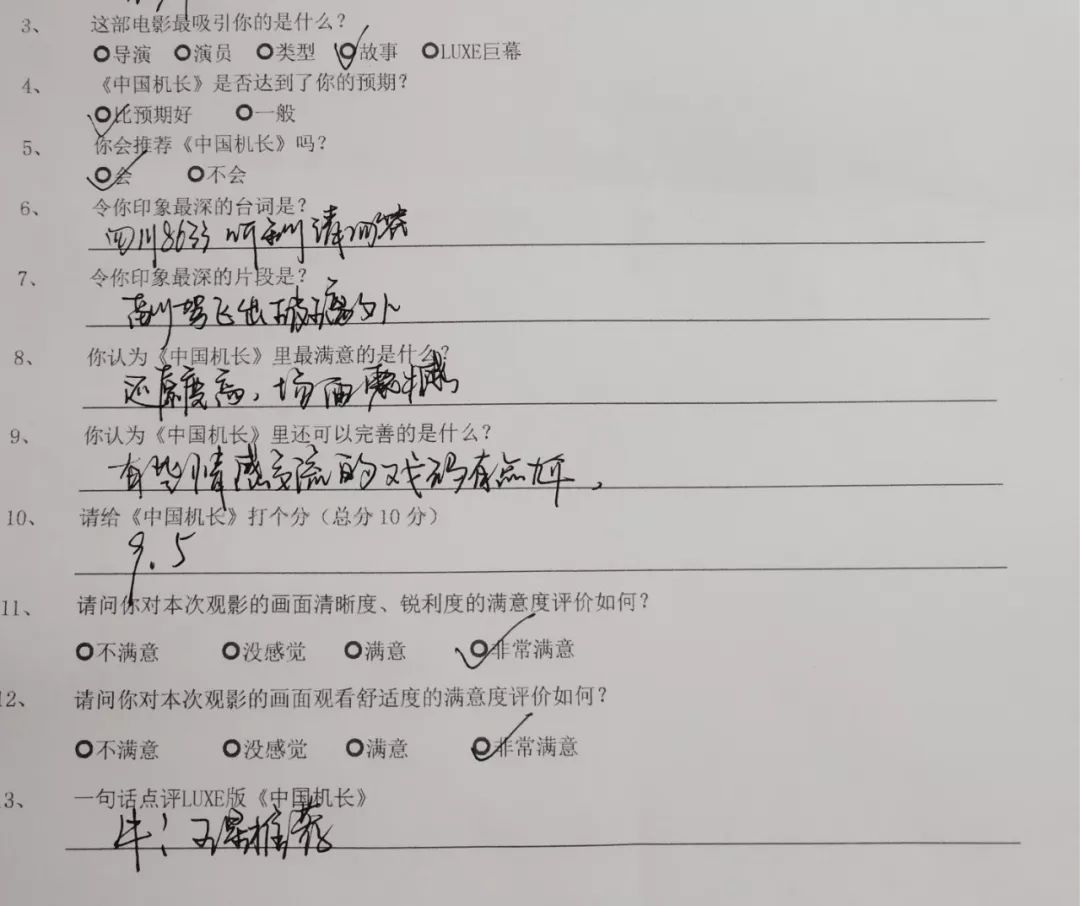 3、 这部电影最吸引你的是什么？
导演 演员 类型 故事 LUXE巨幕
4、 《中国机长》是否达到了你的预期？
比预期好 一般
5、 你会推荐《中国机长》吗？
会 不会
6、 令你印象最深的台词是？
四川8633 听到请回答
7、 令你印象最深的片段是？
副驾飞出玻璃外
8、 你认为《中国机长》里最满意的是什么？
还原度高，场面震撼
9、 你认为《中国机长》里还可以完善的是什么？
有些情感交流的戏码有点尬。
10、 请给《中国机长》打个分（总分10分）
9.5
11、 请问你对本次观影的画面清晰度、锐利度的满意度评价如何？
不满意 没感觉 满意 非常满意
12、 请问你对本次观影的画面观看舒适度的满意度评价如何？
不满意 没感觉 满意 非常满意
13、 一句话点评LUXE版《中国机长》
牛！五星推荐